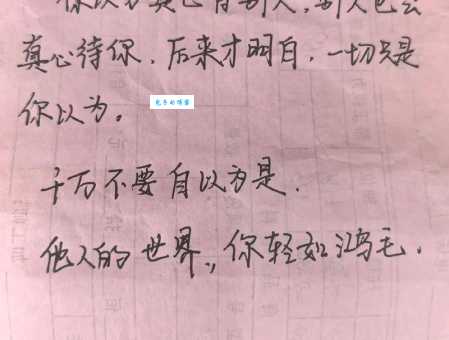 你以为真心待别人，别人也会
真心待你，后来才明白，一切只是
你以为。
千万不要自以为是．
他人的世界，你轻如鸿毛．